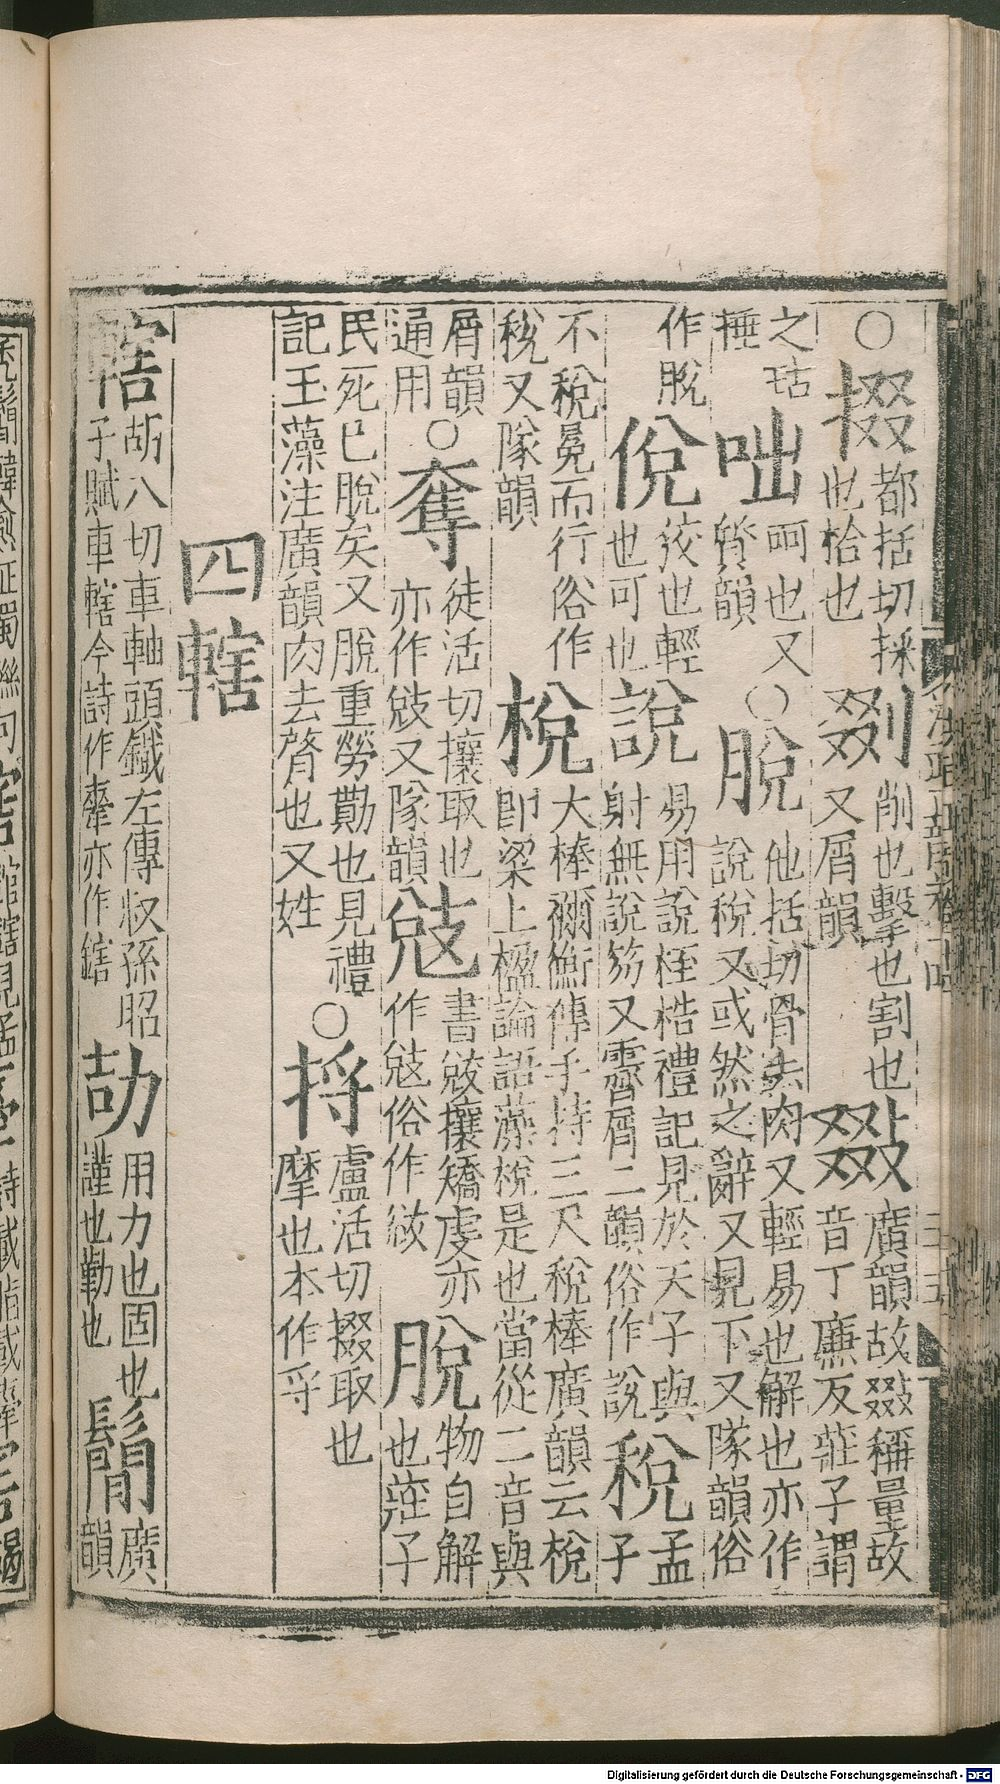 ○掇都括切採也拾也剟削也擊也割也又屑韻敠廣韻故敠稱量故音丁廉反莊子謂
之玷捶咄呵也又質韻○脫他括切骨去肉又輕易也解也亦作說稅又或然之辭又見下又隊韻俗
作脫侻狡也輕也可也說易用說桎梏禮記見於天子與射無說笏又霽屑二韻俗作説稅孟子
不稅冕而行俗作税又隊韻梲大棒禰衡傳手持三尺梲棒廣韻云梲即梁上楹論語藻梲是也當從二音與
屑韻通用○奪徒活切攘取也亦作敓又隊韻敓書敓攘矯虔亦作敓俗作脫物自解也莊子
民死已脫矣又脫重勞勩也見禮記玉藻注廣韻肉去膚也又姓○捋盧活切掇取也摩也本作寽
四轄
轄胡八切車軸頭鐵左傳叔孫昭子賦車轄今詩作舝亦作鎋劼用力也固也謹也勤也鬜廣韻
Digitalisierung gefördert durch die Deutsche Forschungsgemeinschaft - DFG